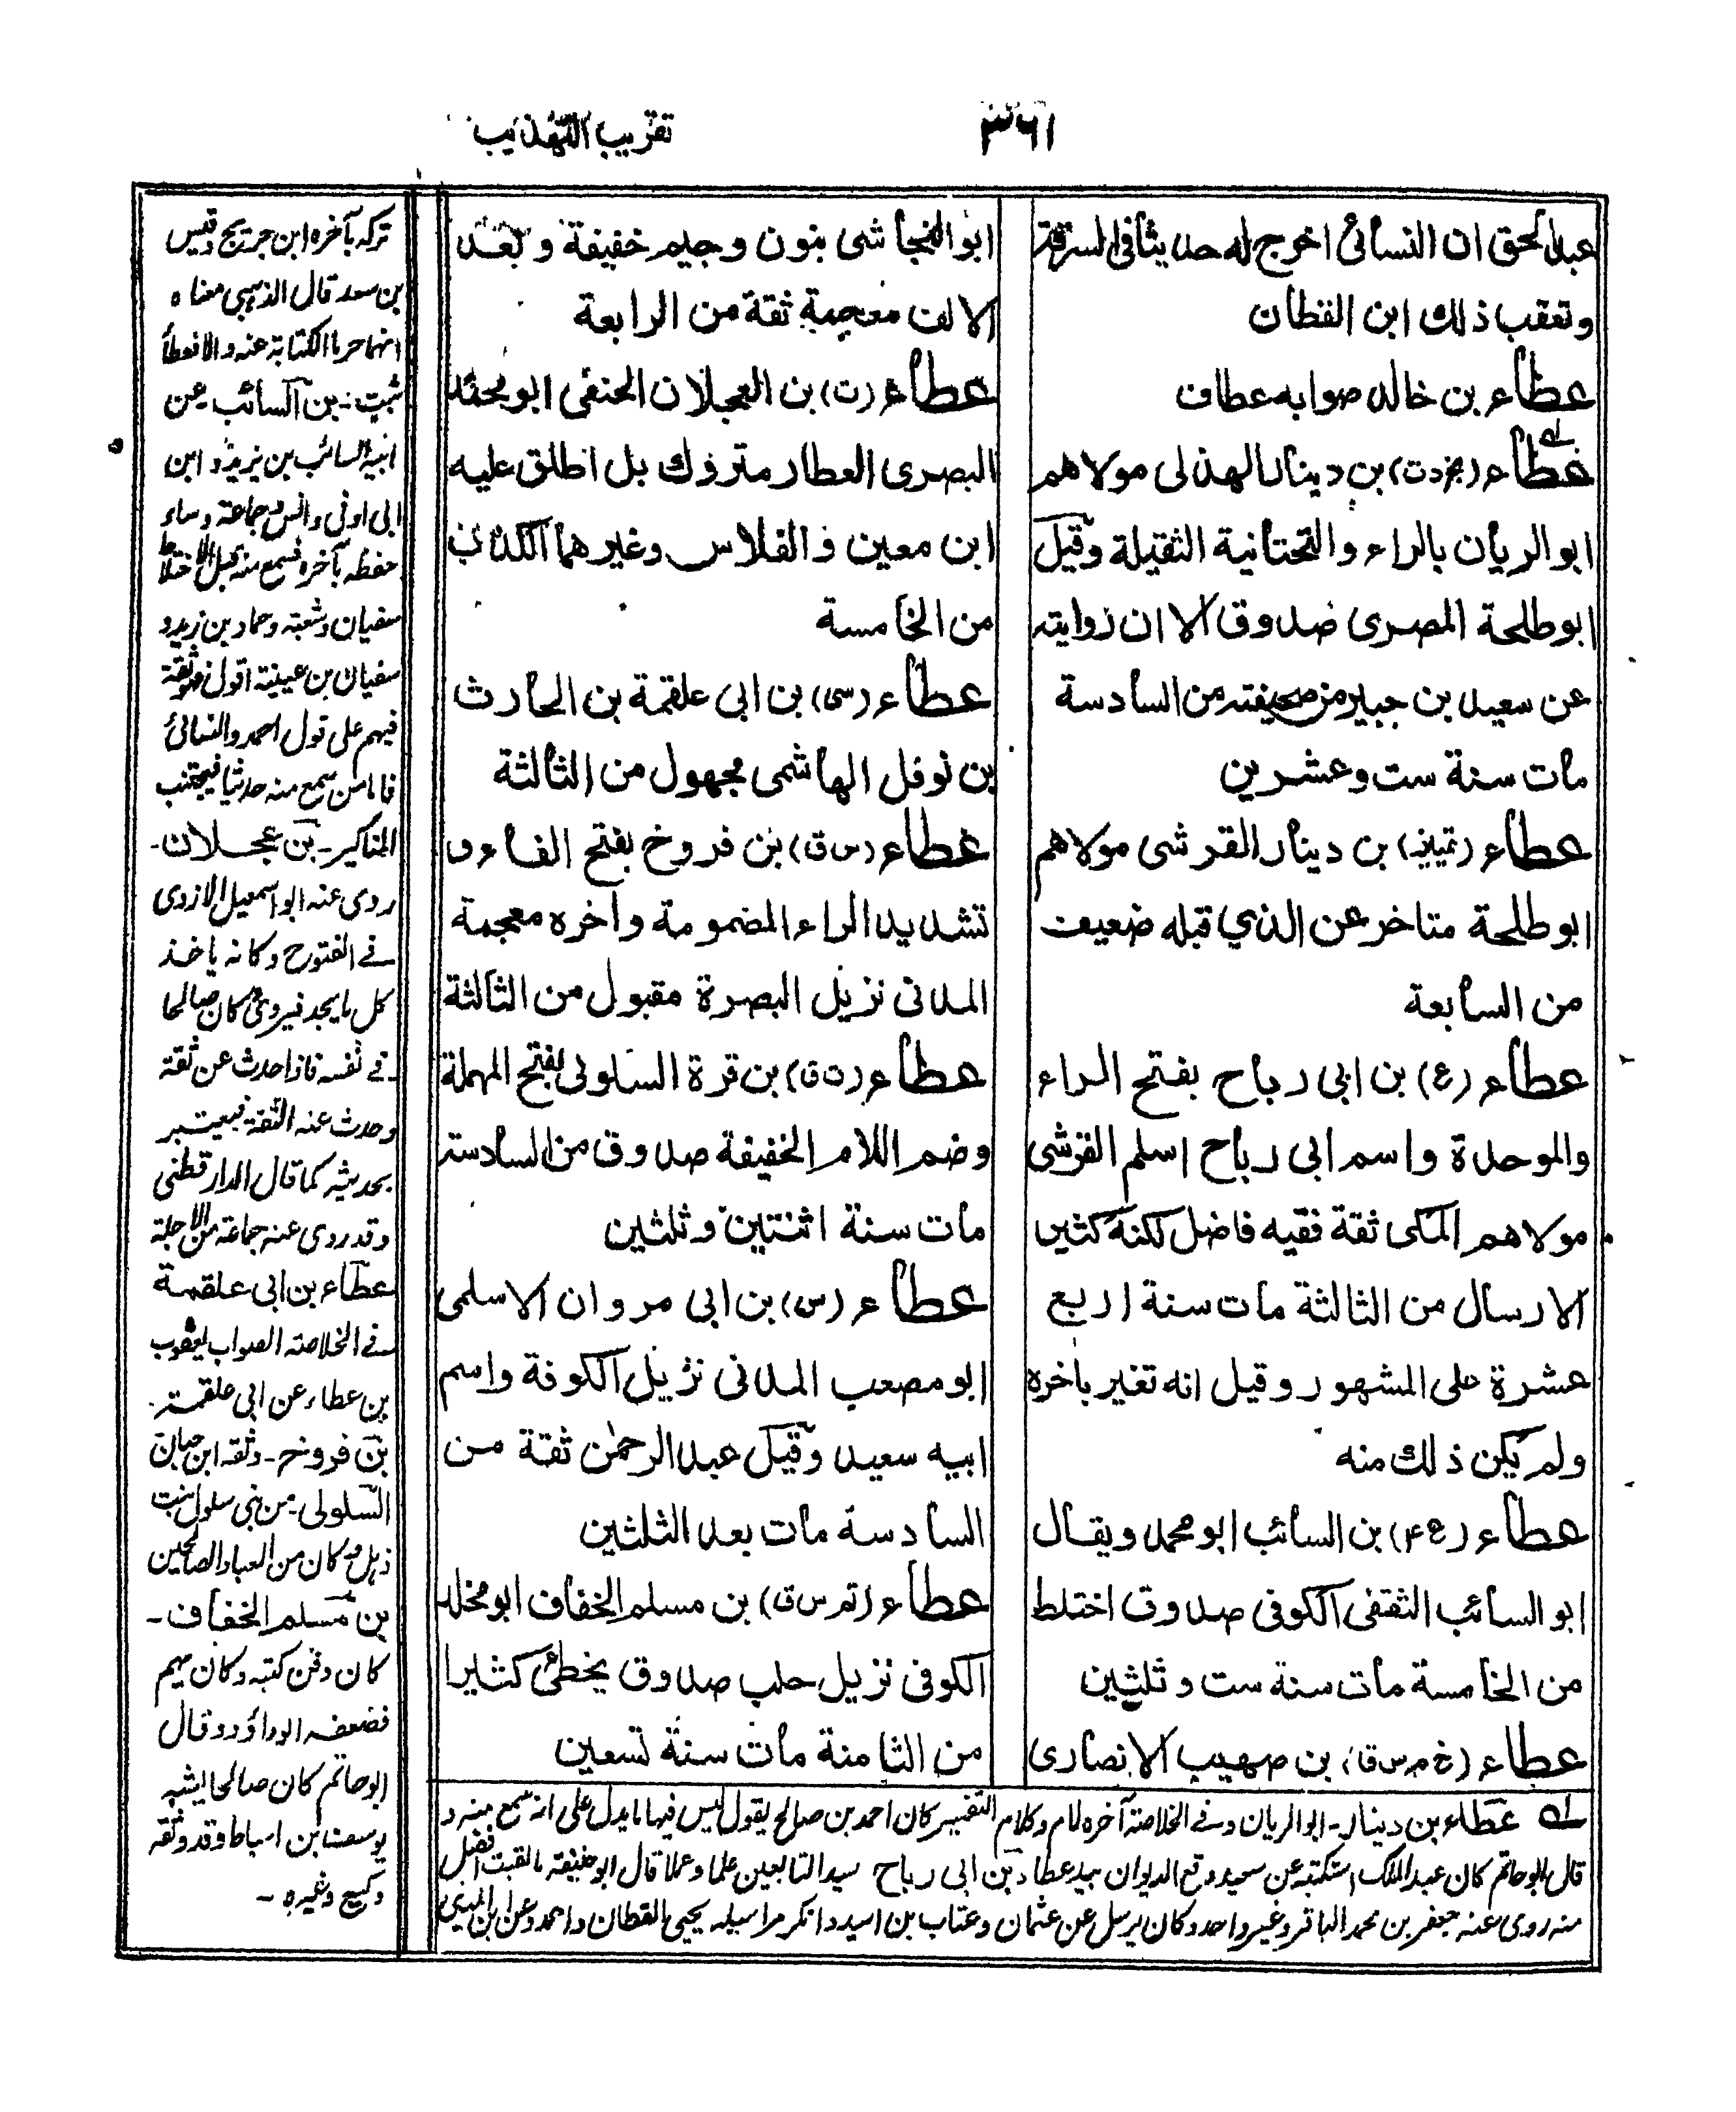 ٣٦١
تقريب التهذيب
عبد الحق ان النسائى اخرج له حديثا فى السرقة
وتعقب ذلك ابن القطان
عطاء بن خالد صوابه عطاف
عطاء (بخ د ت) بن دينار الهذلى مولاهم
ابو الريان بالراء والتحتانية الثقيلة وقيل
ابو طلحة المصرى صدوق الا ان روايته
عن سعيد بن جبير من صحيفته من السادسة
مات سنة ست وعشرين
عطاء (تمييز) بن دينار القرشى مولاهم
ابو طلحة متاخر عن الذي قبله ضعيف
من السابعة
عطاء (ع) بن ابى رباح بفتح الراء
والموحدة واسم ابى رباح اسلم القرشى
مولاهم المكى ثقة فقيه فاضل لكنه كثير
الارسال من الثالثة مات سنة اربع
عشرة على المشهور وقيل انه تغير باخره
ولم يكن ذلك منه
عطاء (خ ۴) بن السائب ابو محمد ويقال
ابو السائب الثقفى الكوفى صدوق اختلط
من الخامسة مات سنة ست وثلثين
عطاء (خ م س ق) بن صهيب الانصارى
ابو النجاشى بنون وجيم خفيفة وبعد
الالف معجمة ثقة من الرابعة
عطاء (ت) بن العجلان الحنفى ابو محمد
البصرى العطار متروك بل اطلق عليه
ابن معين و الفلاس وغيرهما الكذب
من الخامسة
عطاء (سى) بن ابى علقمة بن الحارث
بن نوفل الهاشمى مجهول من الثالثة
عطاء (س ق) بن فروخ بفتح الفاء و
تشديد الراء المضمومة واخره معجمة
المدنى نزيل البصرة مقبول من الثالثة
عطاء (ت ق) بن قرة السلولى بفتح المهملة
وضم اللام الخفيفة صدوق من السادسة
مات سنة اثنتين وثلثين
عطاء (س) بن ابى مروان الاسلمى
ابو مصعب المدنى نزيل الكوفة واسم
ابيه سعيد وقيل عبد الرحمٰن ثقة من
السادسة مات بعد الثلثين
عطاء (تم س ق) بن مسلم الخفاف ابو مخلد
الكوفى نزيل حلب صدوق يخطئ كثيرا
من الثامنة مات سنة تسعين
تركه بآخره ابن جريج وقيس
بن سعد قال الذهبى معناه
انهما حررا الكتابة عنه والا فعطاء
ثبت - بن السائب عن
ابيه السائب بن يزيد وابن
ابى اوفى وانس وجماعة وساء
حفظه بآخره فسمع منه قبل الاختلاط
سفيان وشعبة وحماد بن زيد و
سفيان بن عيينة اقول فهو ثقة
فيهم على قول احمد والنسائى
فاما من سمع منه حديثا فيجتنب
المناكير - بن عجلان -
روى عنه ابو اسمعيل الازدى
فى الفتوح وكانه ياخذ
كل ما يجد فيروى كان صالحا
فى نفسه فاذا حدث عن ثقة
وحدث عنه الثقة فيعتبر
بحديثه كما قال الدارقطنى
وقد روى عنه جماعة من الاجلة
عطاء بن ابى علقمة
فى الخلاصة الصواب يعقوب
بن عطاء عن ابى علقمة
بن فروخ - وثقه ابن حبان
السلولى - من بنى سلول بنت
ذهل وكان من العباد الصالحين
بن مسلم الخفاف -
كان دفن كتبه وكان يهم
فضعفه ابو داؤد وقال
ابو حاتم كان صالحا يشبه
يوسف بن اسباط وقد وثقه
وكيع وغيره -
له عطاء بن دينار - ابو الريان وفى الخلاصة آخره لام وكلام التفسير كان احمد بن صالح يقول ليس فيها ما يدل على انه سمع منه و
قال ابو حاتم كان عبد الملك استكتبه عن سعيد وقع الديوان بيد عطاء بن ابى رباح سيد التابعين علما وعملا قال ابو حنيفة ما لقيت افضل
منه روى عنه جعفر بن محمد الباقر وغير واحد وكان يرسل عن عثمان وعتاب بن اسيد وانكر مراسيله يحيى القطان واحمد وعن ابن المدينى